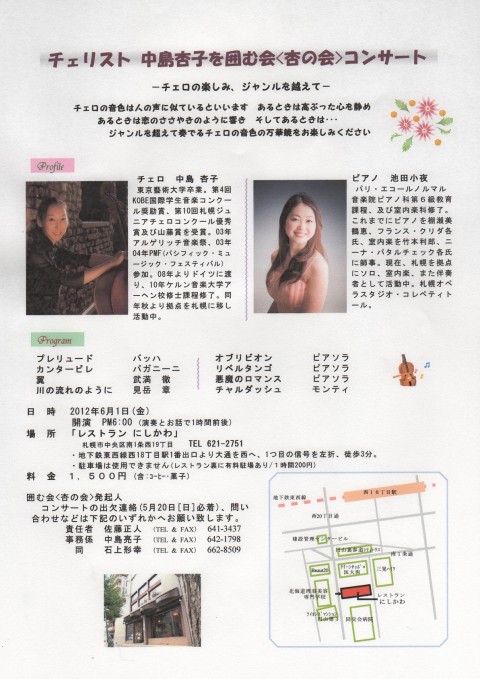 チェリスト 中島杏子を囲む会<杏の会>コンサート
－チェロの楽しみ、ジャンルを越えて－
チェロの音色は人の声に似ているといいます あるときは高ぶった心を静め
あるときは恋のささやきのように響き そしてあるときは･･･
ジャンルを超えて奏でるチェロの音色の万華鏡をお楽しみください
Profile
チェロ 中島 杏子
東京藝術大学卒業。第4回
KOBE国際学生音楽コンクー
ル奨励賞、第10回札幌ジュ
ニアチェロコンクール優秀
賞及び山藤賞を受賞。03年
アルゲリッチ音楽祭、03年
04年PMF(パシフィック・ミ
ュージック・フェスティバル)
参加。08年よりドイツに渡
り、10年ケルン音楽大学ア
ーヘン校修士課程修了。同
年秋より拠点を札幌に移し
活動中。
ピアノ 池田小夜
パリ・エコールノルマル
音楽院ピアノ科第６級教育
課程、及び室内楽科修了。
これまでにピアノを棚瀬美
鶴恵、フランス・クリダ各
氏、室内楽を竹本利郎、ニ
ーナ・パタルチェック各氏
に師事。現在、札幌を拠点
にソロ、室内楽、また伴奏
者として活動中。札幌オペ
ラスタジオ・コレペティト
ール。
Program
プレリュード バッハ
カンタービレ パガニーニ
翼 武満 徹
川の流れのように 見岳 章
オブリビオン ピアソラ
リベルタンゴ ピアソラ
悪魔のロマンス ピアソラ
チャルダッシュ モンティ
日 時 2012年6月1日(金)
開演 PM6:00 (演奏とお話で1時間前後)
場 所 「レストラン にしかわ」 TEL 621-2751
札幌市中央区南1条西19丁目
・地下鉄東西線西18丁目駅1番出口より大通を西へ、1つ目の信号を左折、徒歩3分。
・駐車場は使用できません(レストラン裏に有料駐場あり/1時間200円)
料 金 １，５００円 (含:ｺｰﾋｰ･菓子)
囲む会<杏の会>発起人
コンサートの出欠連絡(5月20日[日]必着)、問い
合わせなどは下記のいずれかへお願い致します。
責任者 佐藤正人 (TEL & FAX) 641-3437
事務係 中島亮子 (TEL & FAX) 642-1798
同 石上形幸 (TEL & FAX) 662-8509
地下鉄東西線
西１８丁目駅
西20丁目通
南１条通
三星ハウ
北海道理容美容
専門学校
レストラン
にしかわ
同交会病院